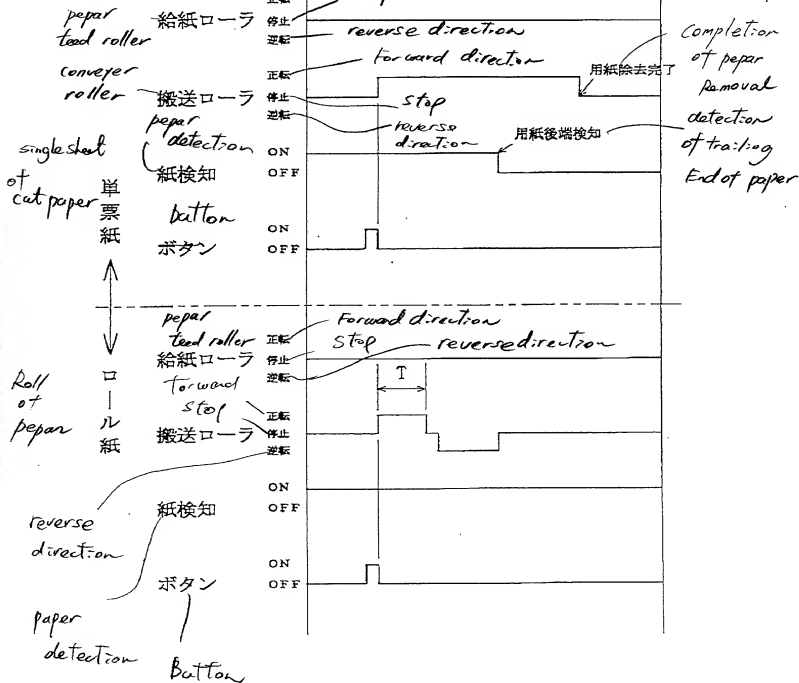 正転
pepar
feed roller
給紙ローラ
停止
逆転
reverse direction
conveyer
roller
搬送ローラ
正転
停止
逆転
Forward direction
stop
reverse
direction
用紙除去完了
Completion
of pepar
Removal
pepar
detection
紙検知
ON
OFF
用紙後端検知
detection
of trailiog
End of paper
single sheet
of
cut paper
単票紙
button
ボタン
ON
OFF
pepar
feed roller
給紙ローラ
正転
停止
逆転
Forward direction
stop
reverse direction
T
Roll
of
pepar
ロール紙
forward
stop
搬送ローラ
正転
停止
逆転
reverse
direction
紙検知
ON
OFF
paper
detection
ボタン
ON
OFF
Button